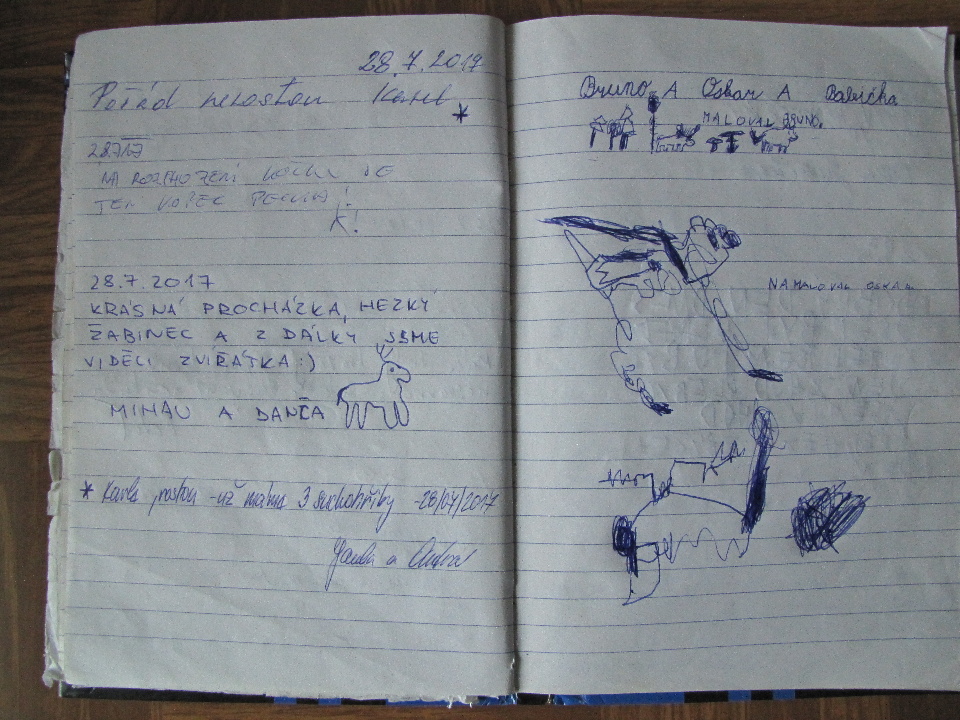 28.7.2017
Pořád nerostou Karel
*
28.7.17
NA ROZCHOZENÍ KOČKU JE
TEN KOPEC
K!
28.7.2017
KRÁSNÁ PROCHÁZKA, HEZKÝ
ŽABINEC A Z DÁLKY JSME
VIDĚLI ZVÍŘÁTKA :)
MIHAU A DANČA
* Karle rostou - už máme 3 suchohřiby - 28/07/2017
a
Bruno A Oskar A Babička
MALOVAL BRUNO.
NAMALOVAL OSKAR